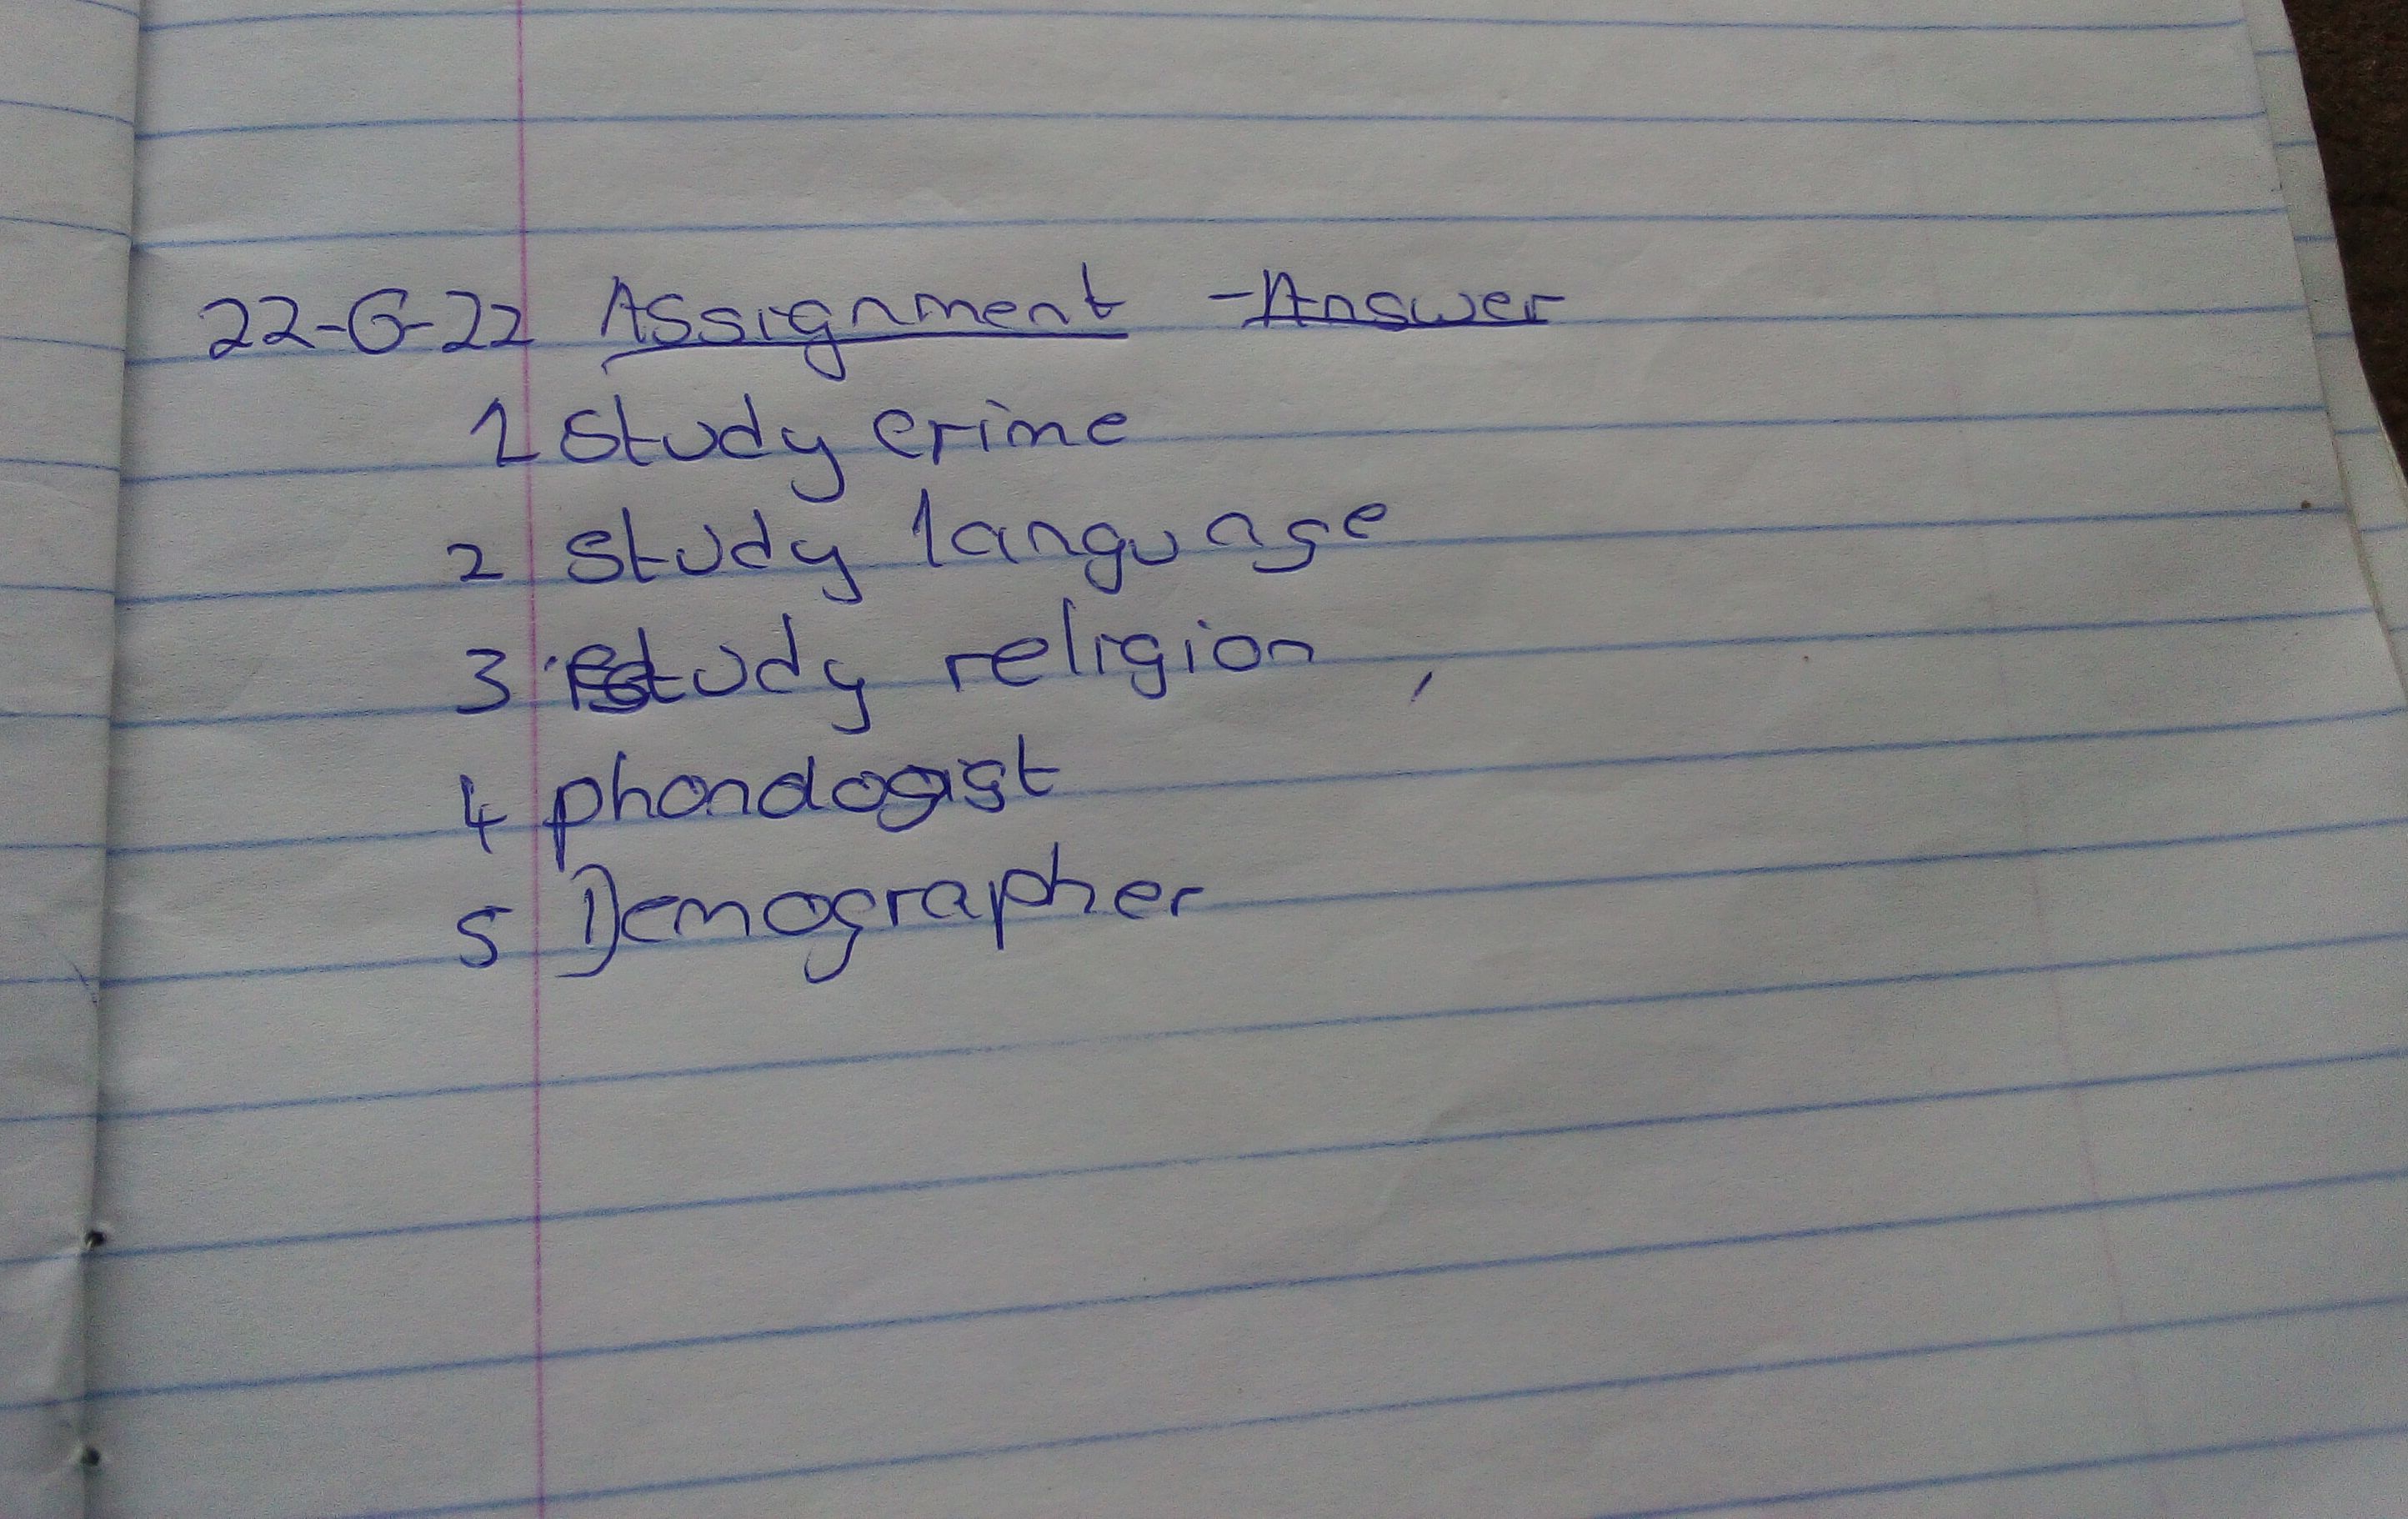 22-6-22 Assignment - Answer
1 Study crime
2 Study language
3 Study religion
4 phonologist
5 Demographer